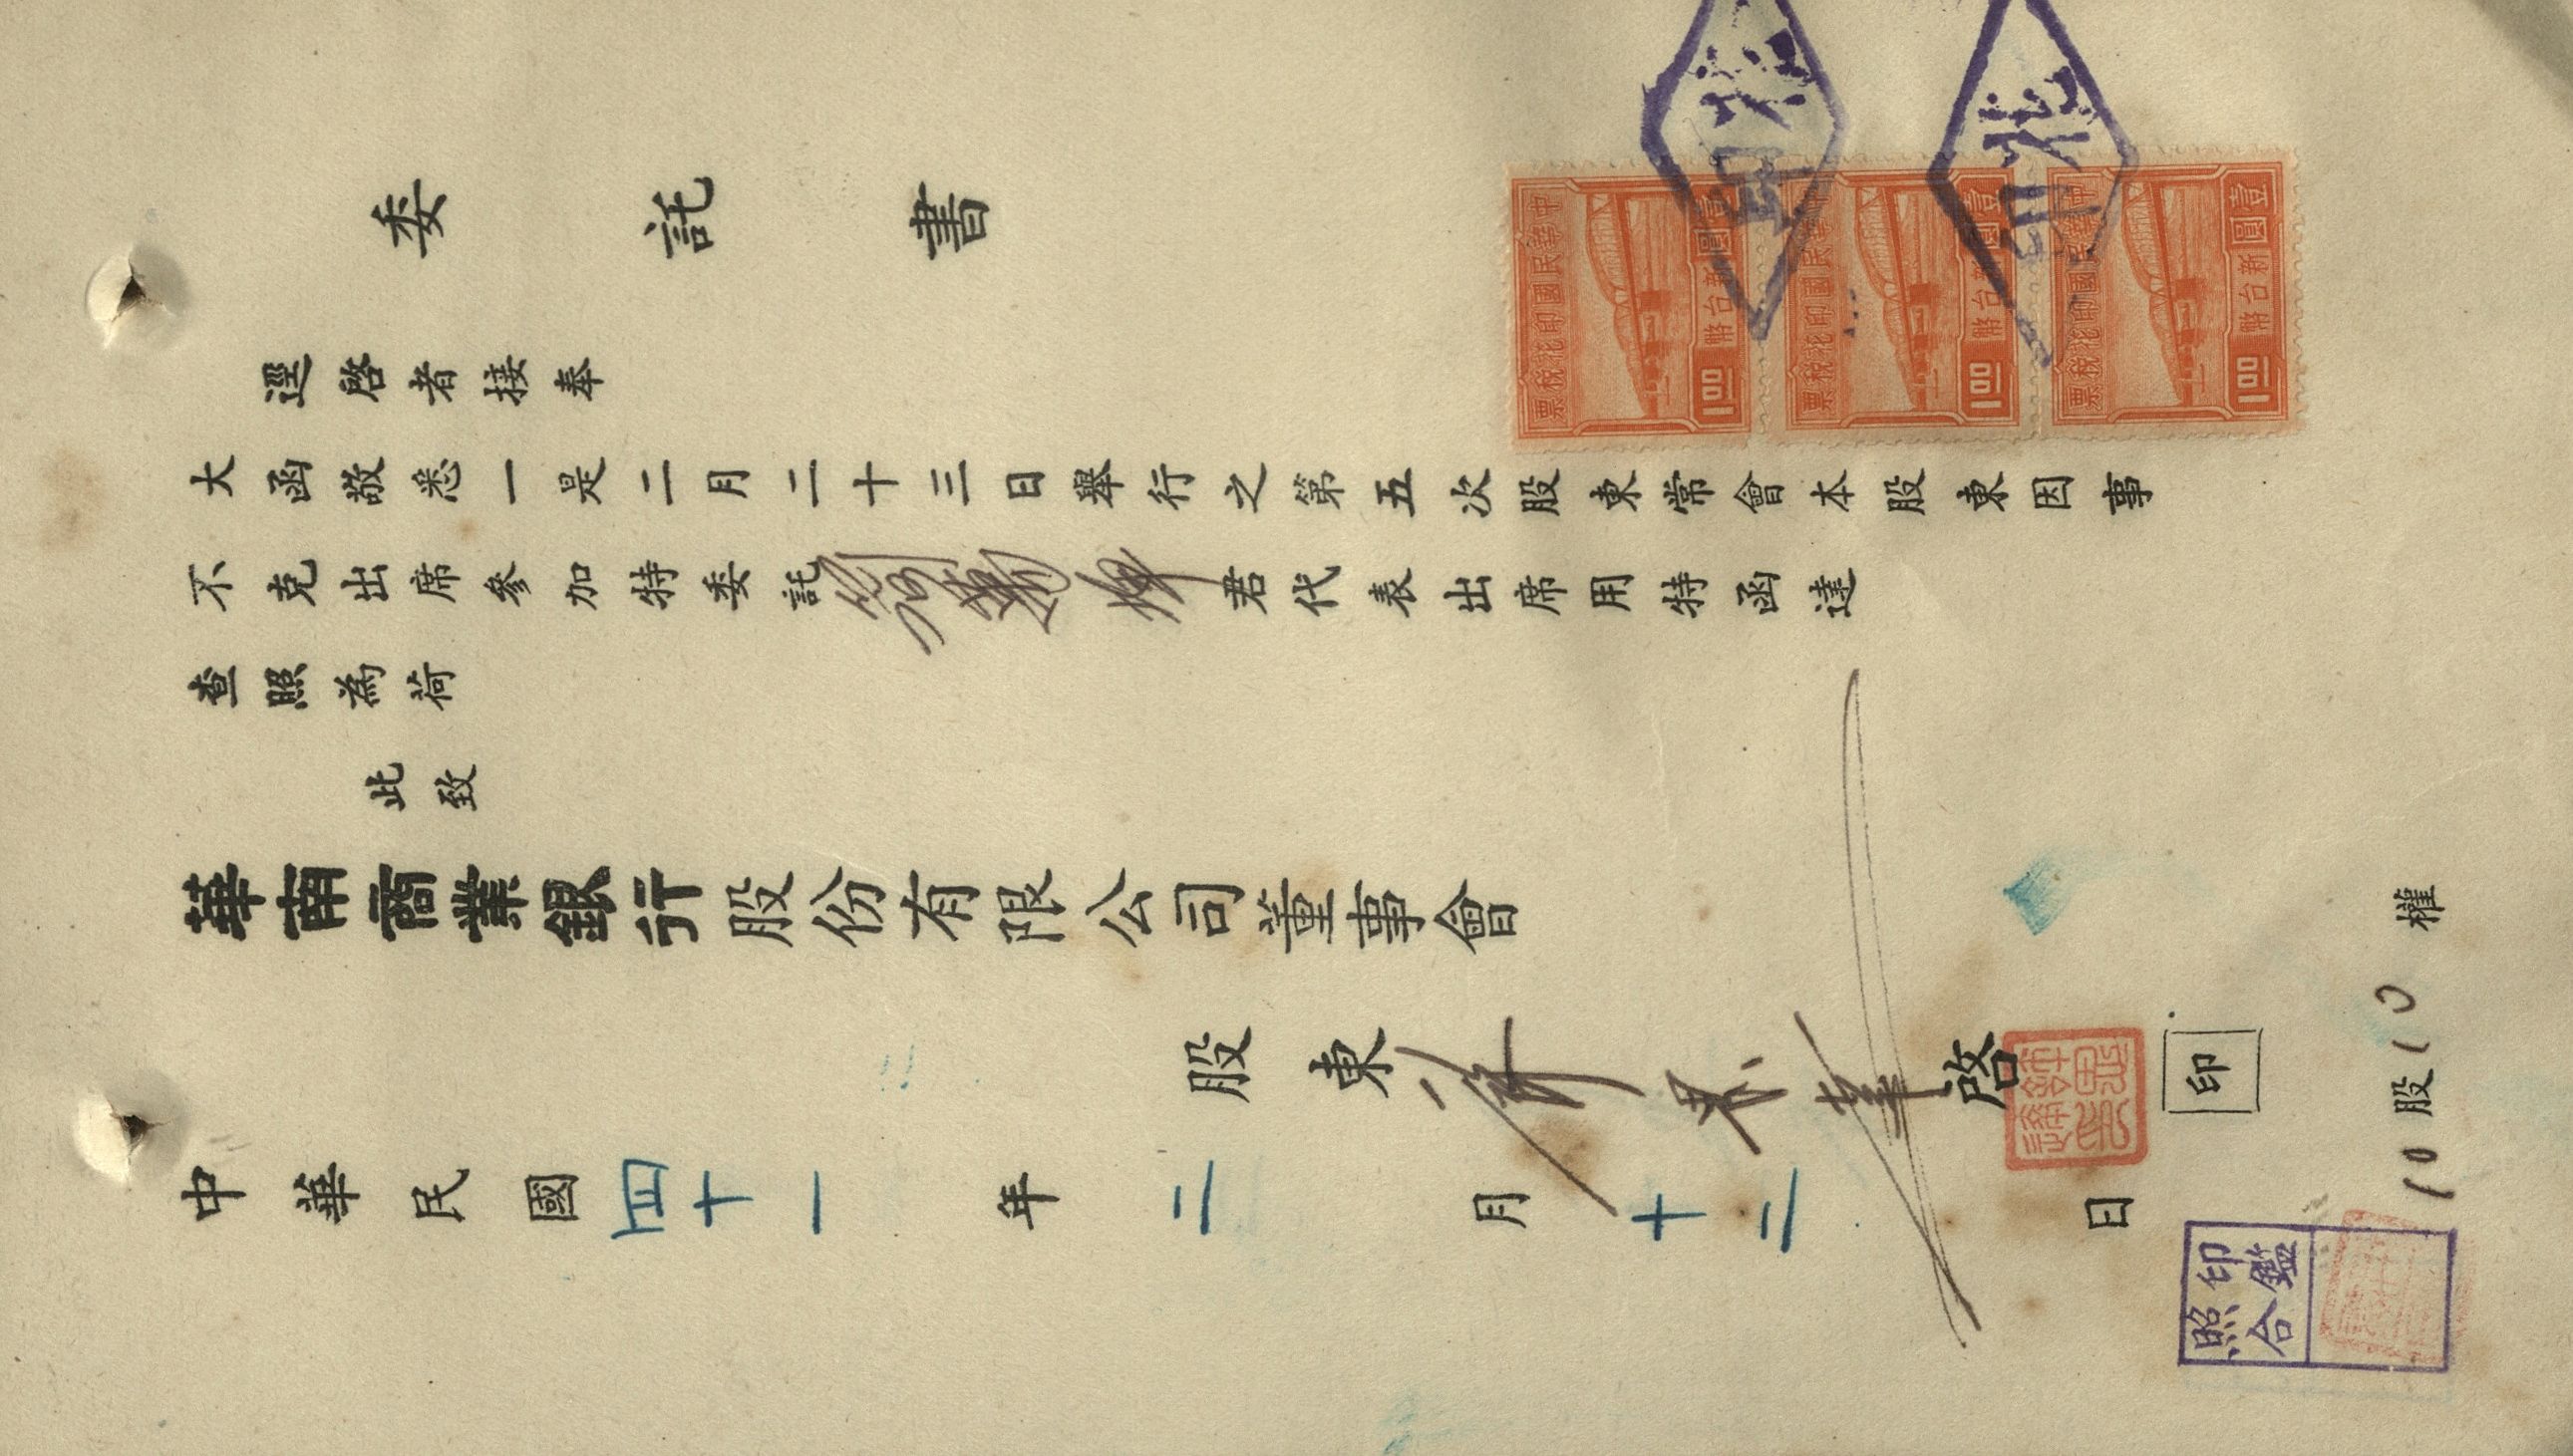 委託書
逕啓者接奉
大函敬悉一是二月二十三日舉行之第五次股東常會本股東因事
不克出席參加特委託
君代表出席用特函達
查照為荷
此致
華南商業銀行股份有限公司董事會
股東
啓
印
中華民國四十一年二月十二日
10股10權
印鑑
照合
中華民國印花稅票
壹圓
新台幣
1.00
中華民國印花稅票
壹圓
新台幣
1.00
中華民國印花稅票
壹圓
新台幣
1.00